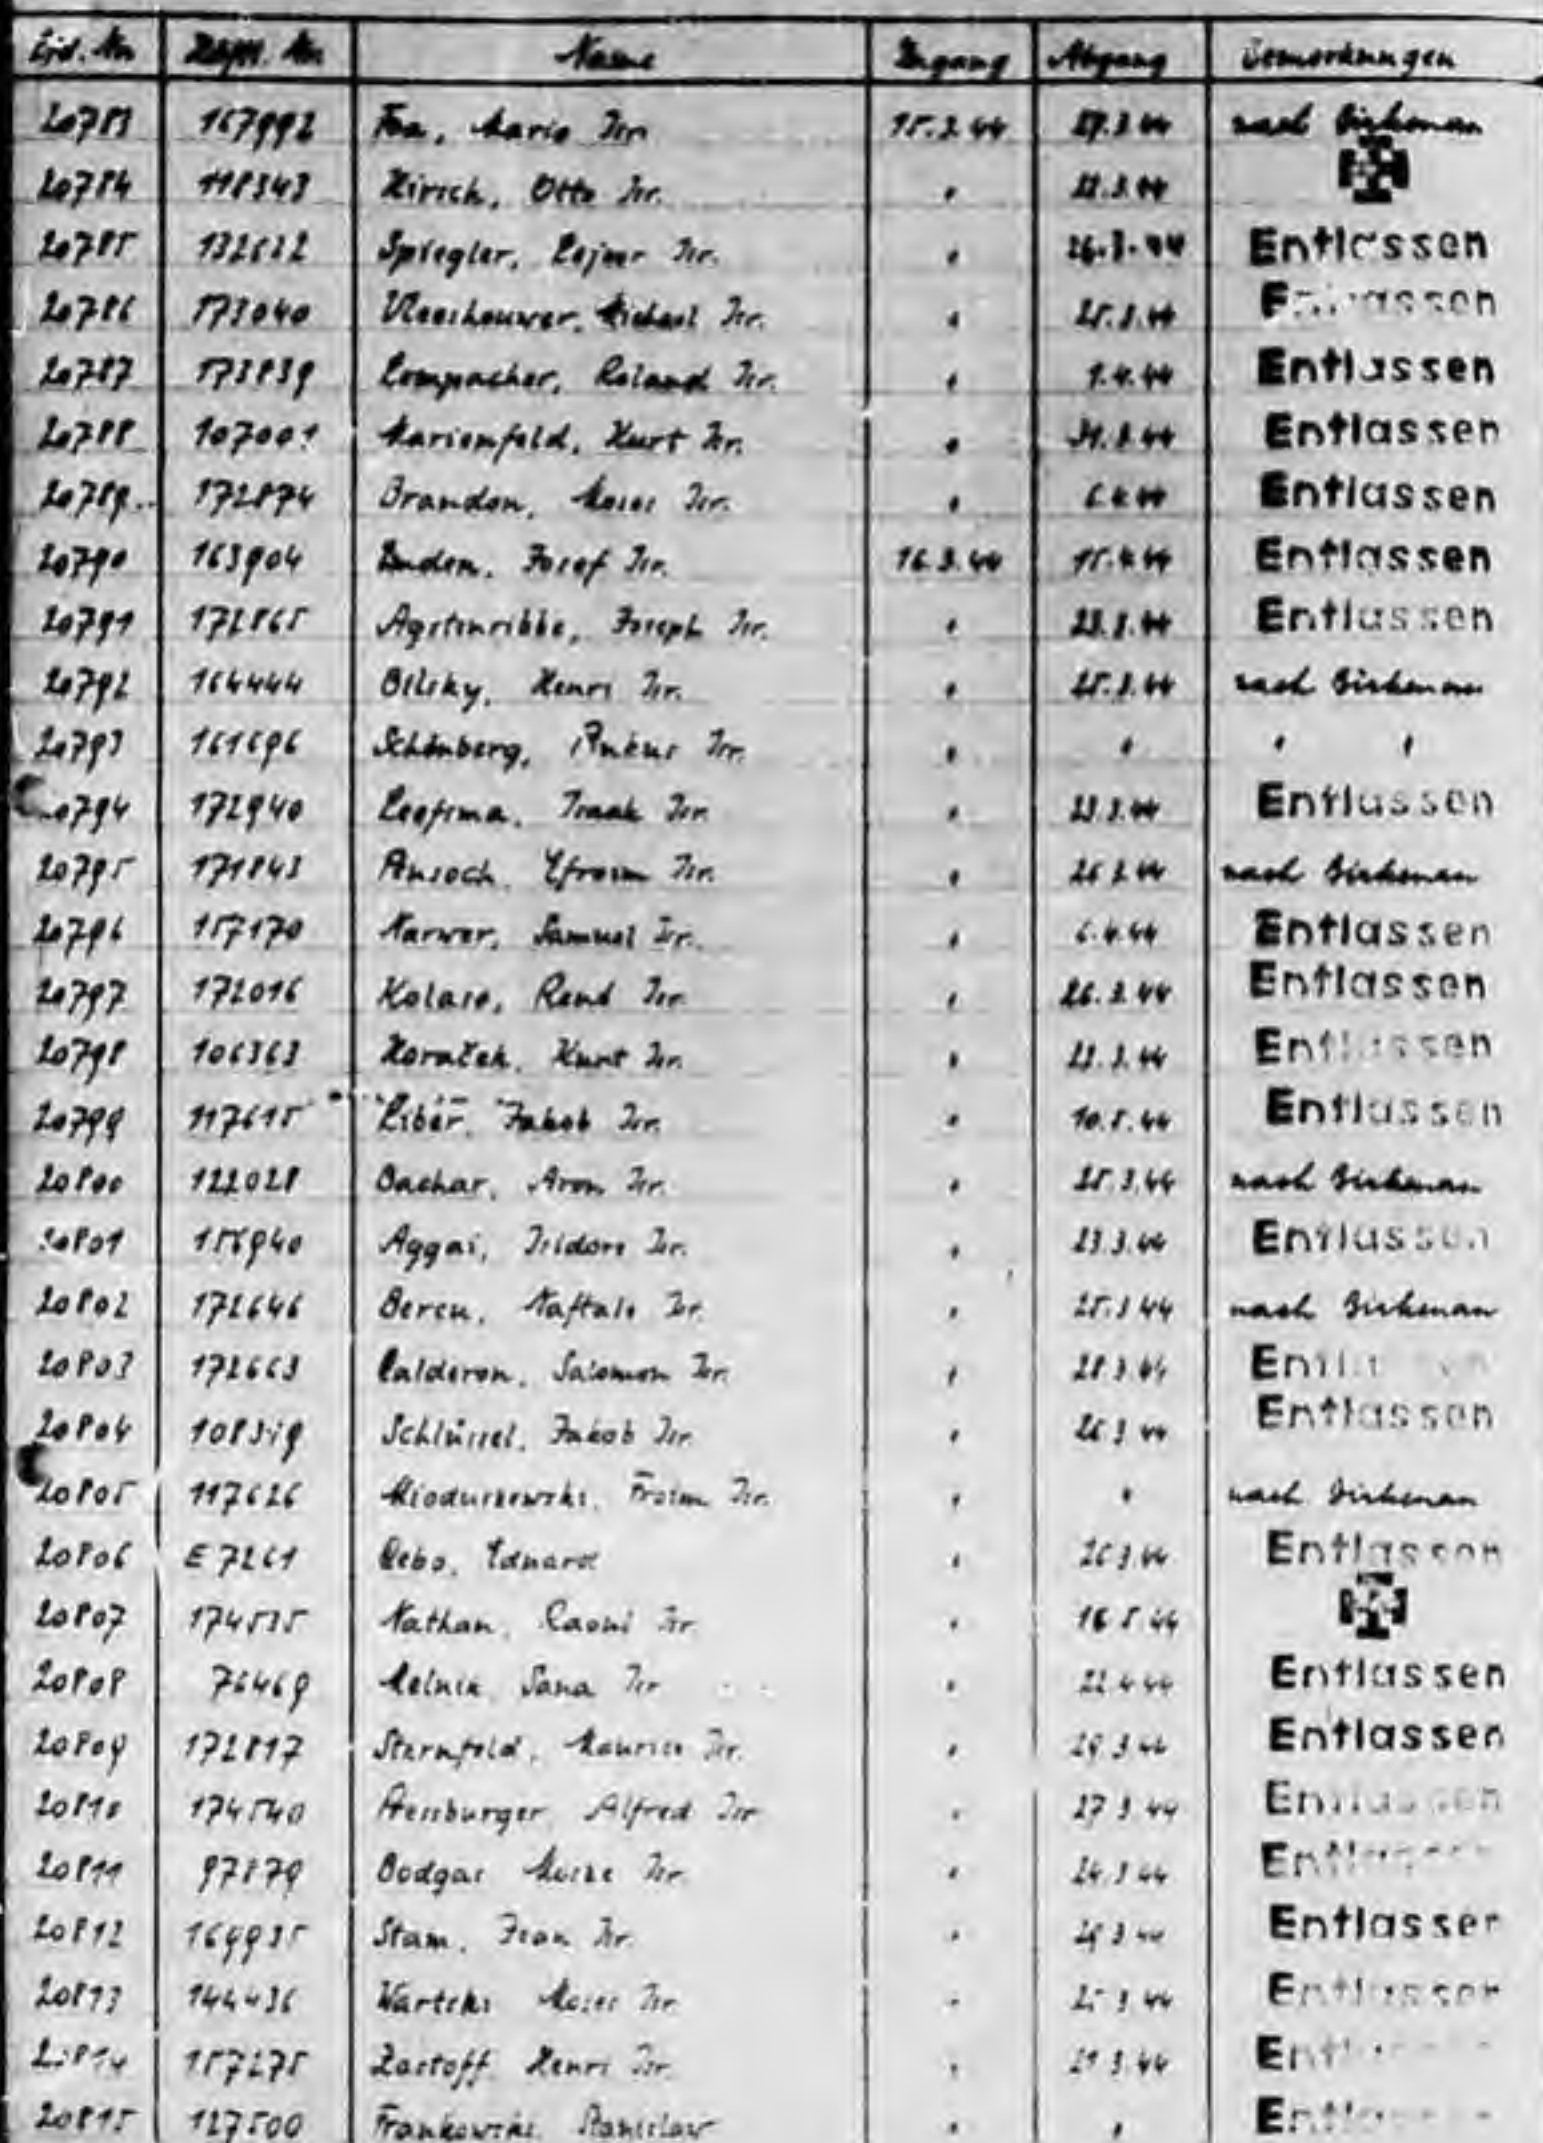 Lfd. Nr. Name Zugang Abgang Bemerkungen
20783 167992 Foa, Mario Isr. 15.3.44 27.3.44 nach Birkenau
20784 118343 Hirsch, Otto Isr. " 22.3.44
20785 132622 Spiegler, Lejser Isr. " 26.3.44 Entlassen
20786 173040 Vleeshouwer, Michael Isr. " 25.3.44 Entlassen
20787 173839 Roland Isr. " 1.4.44 Entlassen
20788 107001 Marienfeld, Kurt Isr. " 31.3.44 Entlassen
20789 172874 Brandon, Moses Isr. " 6.4.44 Entlassen
20790 163904 Josef Isr. 16.3.44 15.4.44 Entlassen
20791 172865 Agstenribbe, Joseph Isr. " 23.3.44 Entlassen
20792 164444 Bilsky, Henri Isr. " 25.3.44 nach Birkenau
20793 161696 Schönberg, Pinkus Isr. " " " "
20794 172940 Leefsma, Isaak Isr. " 23.3.44 Entlassen
20795 171843 Efroim Isr. " 26.3.44 nach Birkenau
20796 157170 Samuel Isr. " 6.4.44 Entlassen
20797 172016 René Isr. " 26.3.44 Entlassen
20798 106363 Horaček, Kurt Isr. " 23.3.44 Entlassen
20799 117615 Liber, Jakob Isr. " 10.5.44 Entlassen
20800 122028 Bachar, Aron Isr. " 25.3.44 nach Birkenau
20801 156940 Aggai, Isidore Isr. " 23.3.44 Entlassen
20802 172646 Bercu, Naftale Isr. " 25.3.44 nach Birkenau
20803 172663 Calderon, Salomon Isr. " 28.3.44 Entlassen
20804 Schlüssel, Jakob Isr. " 26.3.44 Entlassen
20805 117626 Mioduszewski, Froim Isr. " " nach Birkenau
20806 E 7261 Eduard " 26.3.44 Entlassen
20807 174535 Nathan, Raoul Isr. " 16.5.44
20808 76469 Melnik, Sana Isr. " 22.4.44 Entlassen
20809 172817 Sternfeld, Maurice Isr. " 29.3.44 Entlassen
20810 174540 Alfred Isr. " 27.3.44 Entlassen
20811 97879 Bodgas Moske Isr. " 24.3.44 Entlassen
20812 169935 Stam, Jean Isr. " 28.3.44 Entlassen
20813 144436 Wartski Moses Isr. " 25.3.44 Entlassen
20814 157275 Zastoff, Henri Isr. " 21.3.44 Entlassen
20815 127500 Frankowski, Stanislaw " " Entlassen